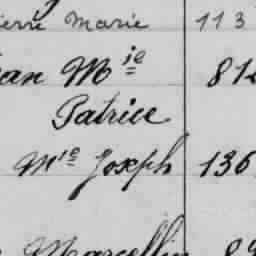 Marie 113
M^ie 81
Patrice
M^ie Joseph 136
Marcellin